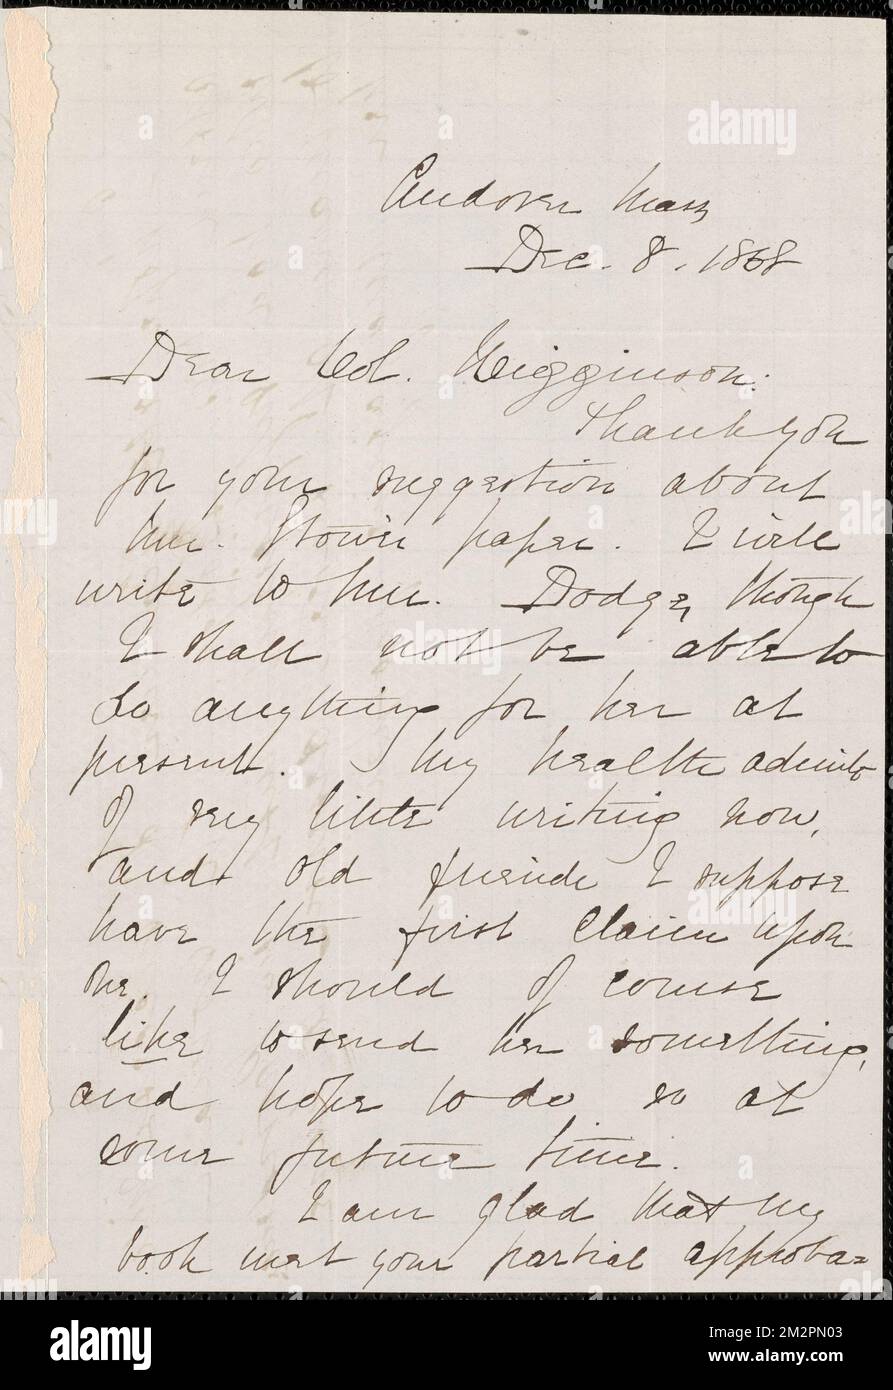 Andover Mass
Dec. 8. 1868
Dear Col. Higginson.
Thank you
for your suggestion about
Mrs. Stowe's paper. I will
write to Mrs. Dodge, though
I shall not be able to
do anything for her at
present. My health admits
of very little writing now,
and old friends I suppose
have the first claim upon
me. I should of course
like to send her something,
and hope to do so at
some future time.
I am glad that my
book met your partial approba=
alamy
Image ID: 2M2PN03
www.alamy.com